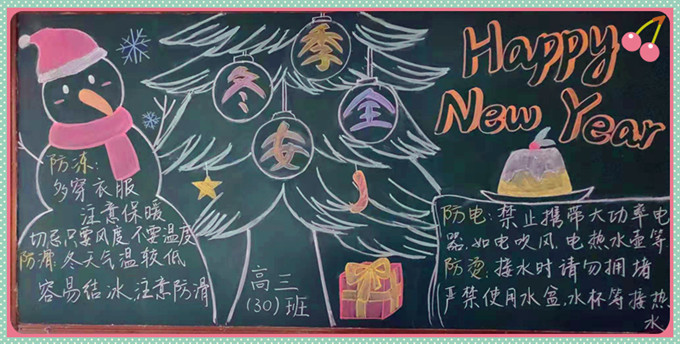 冬季安全
Happy
New Year
防冻:
多穿衣服
注意保暖
切忌只要风度不要温度
防滑:冬天气温较低
容易结冰.注意防滑
高三
(30)班
防电:禁止携带大功率电
器.如电吹风.电热水壶等
防烫:接水时请勿拥堵
严禁使用水盆.水杯等接热
水